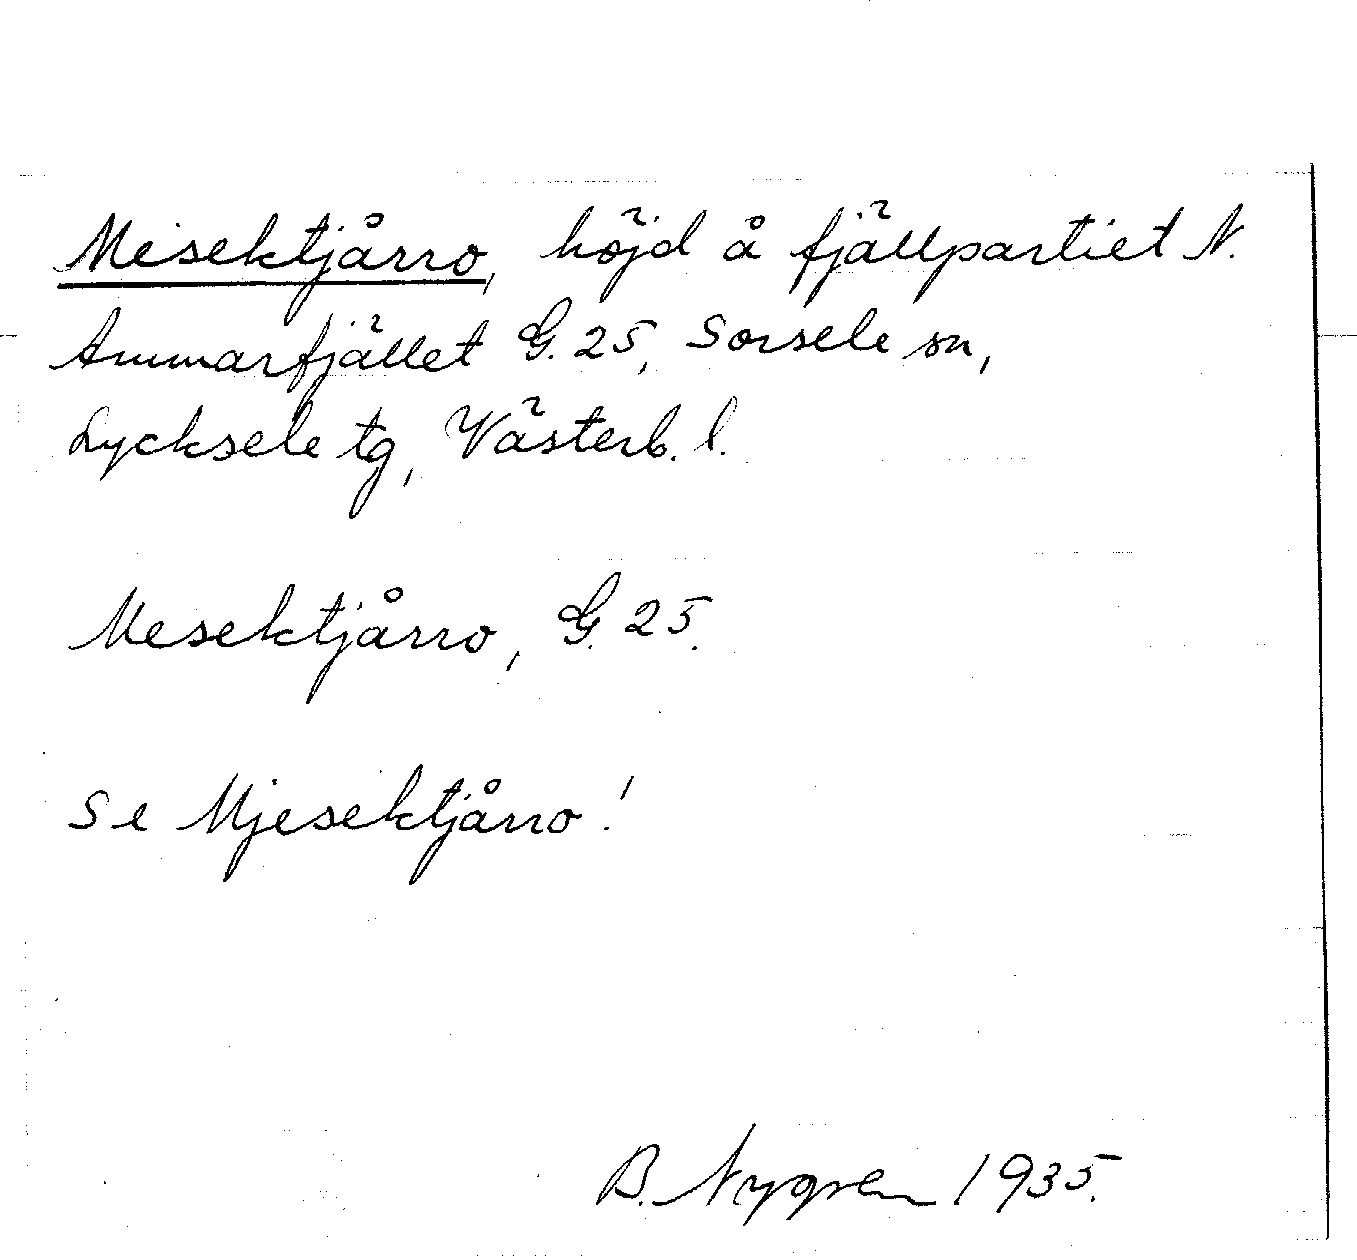 Meisektjårro, höjd å fjällpartiet N.
Ammarfjället G. 25, Sorsele sn,
Lycksele tg, Västerb. l.
Mesektjårro, G. 25.
Se Mjesektjårro!
B. Nygren 1935.